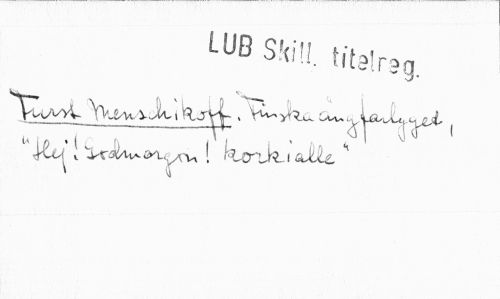 LUB Skill. titelreg.
Furst Menschikoff. Finska ångfartyget,
"Hej! Godmorgon! korkialle"